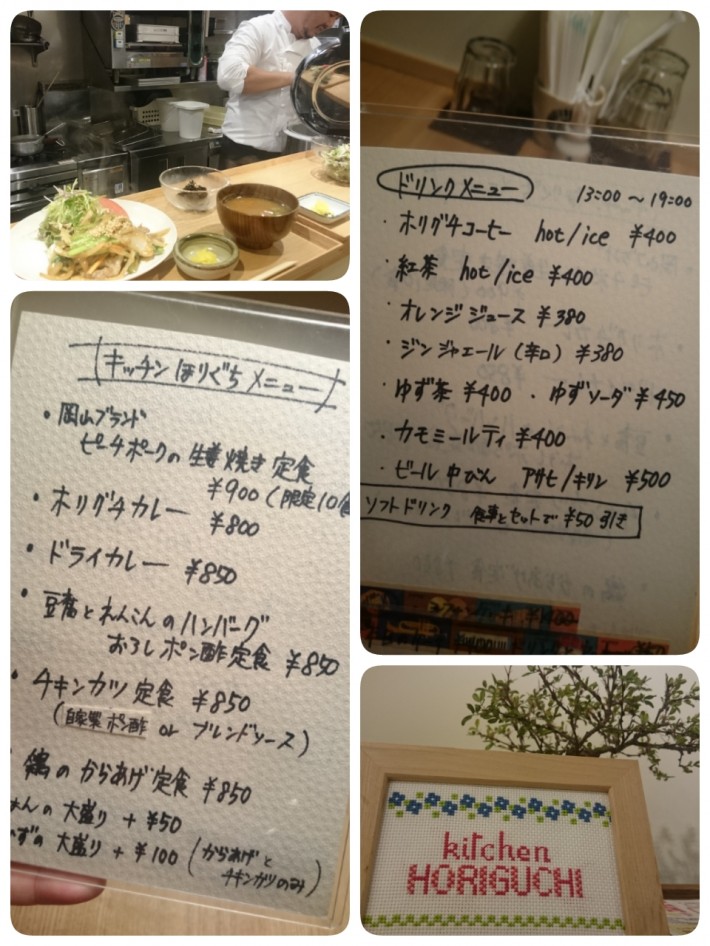 キッチン ほりぐち メニュー
・岡山ブランド
ピーチポークの生姜焼き定食
¥900 (限定10食
・ホリグチカレー ¥800
・ドライカレー ¥850
・豆腐とれんこんのハンバーグ
おろしポン酢定食 ¥850
・チキンカツ定食 ¥850
(自家製ポン酢 or ブレンドソース)
・鶏のからあげ定食 ¥850
はんの大盛り + ¥50
かずの大盛り + ¥100 (からあげと
チキンカツのみ)
ドリンクメニュー 13:00 ~ 19:00
・ホリグチコーヒー hot/ice ¥400
・紅茶 hot/ice ¥400
・オレンジジュース ¥380
・ジンジャエール (辛口) ¥380
・ゆず茶 ¥400 ・ゆずソーダ ¥450
・カモミールティ ¥400
・ビール中びん アサヒ/キリン ¥500
ソフトドリンク 食事とセットで ¥50引き
kitchen
HORIGUCHI